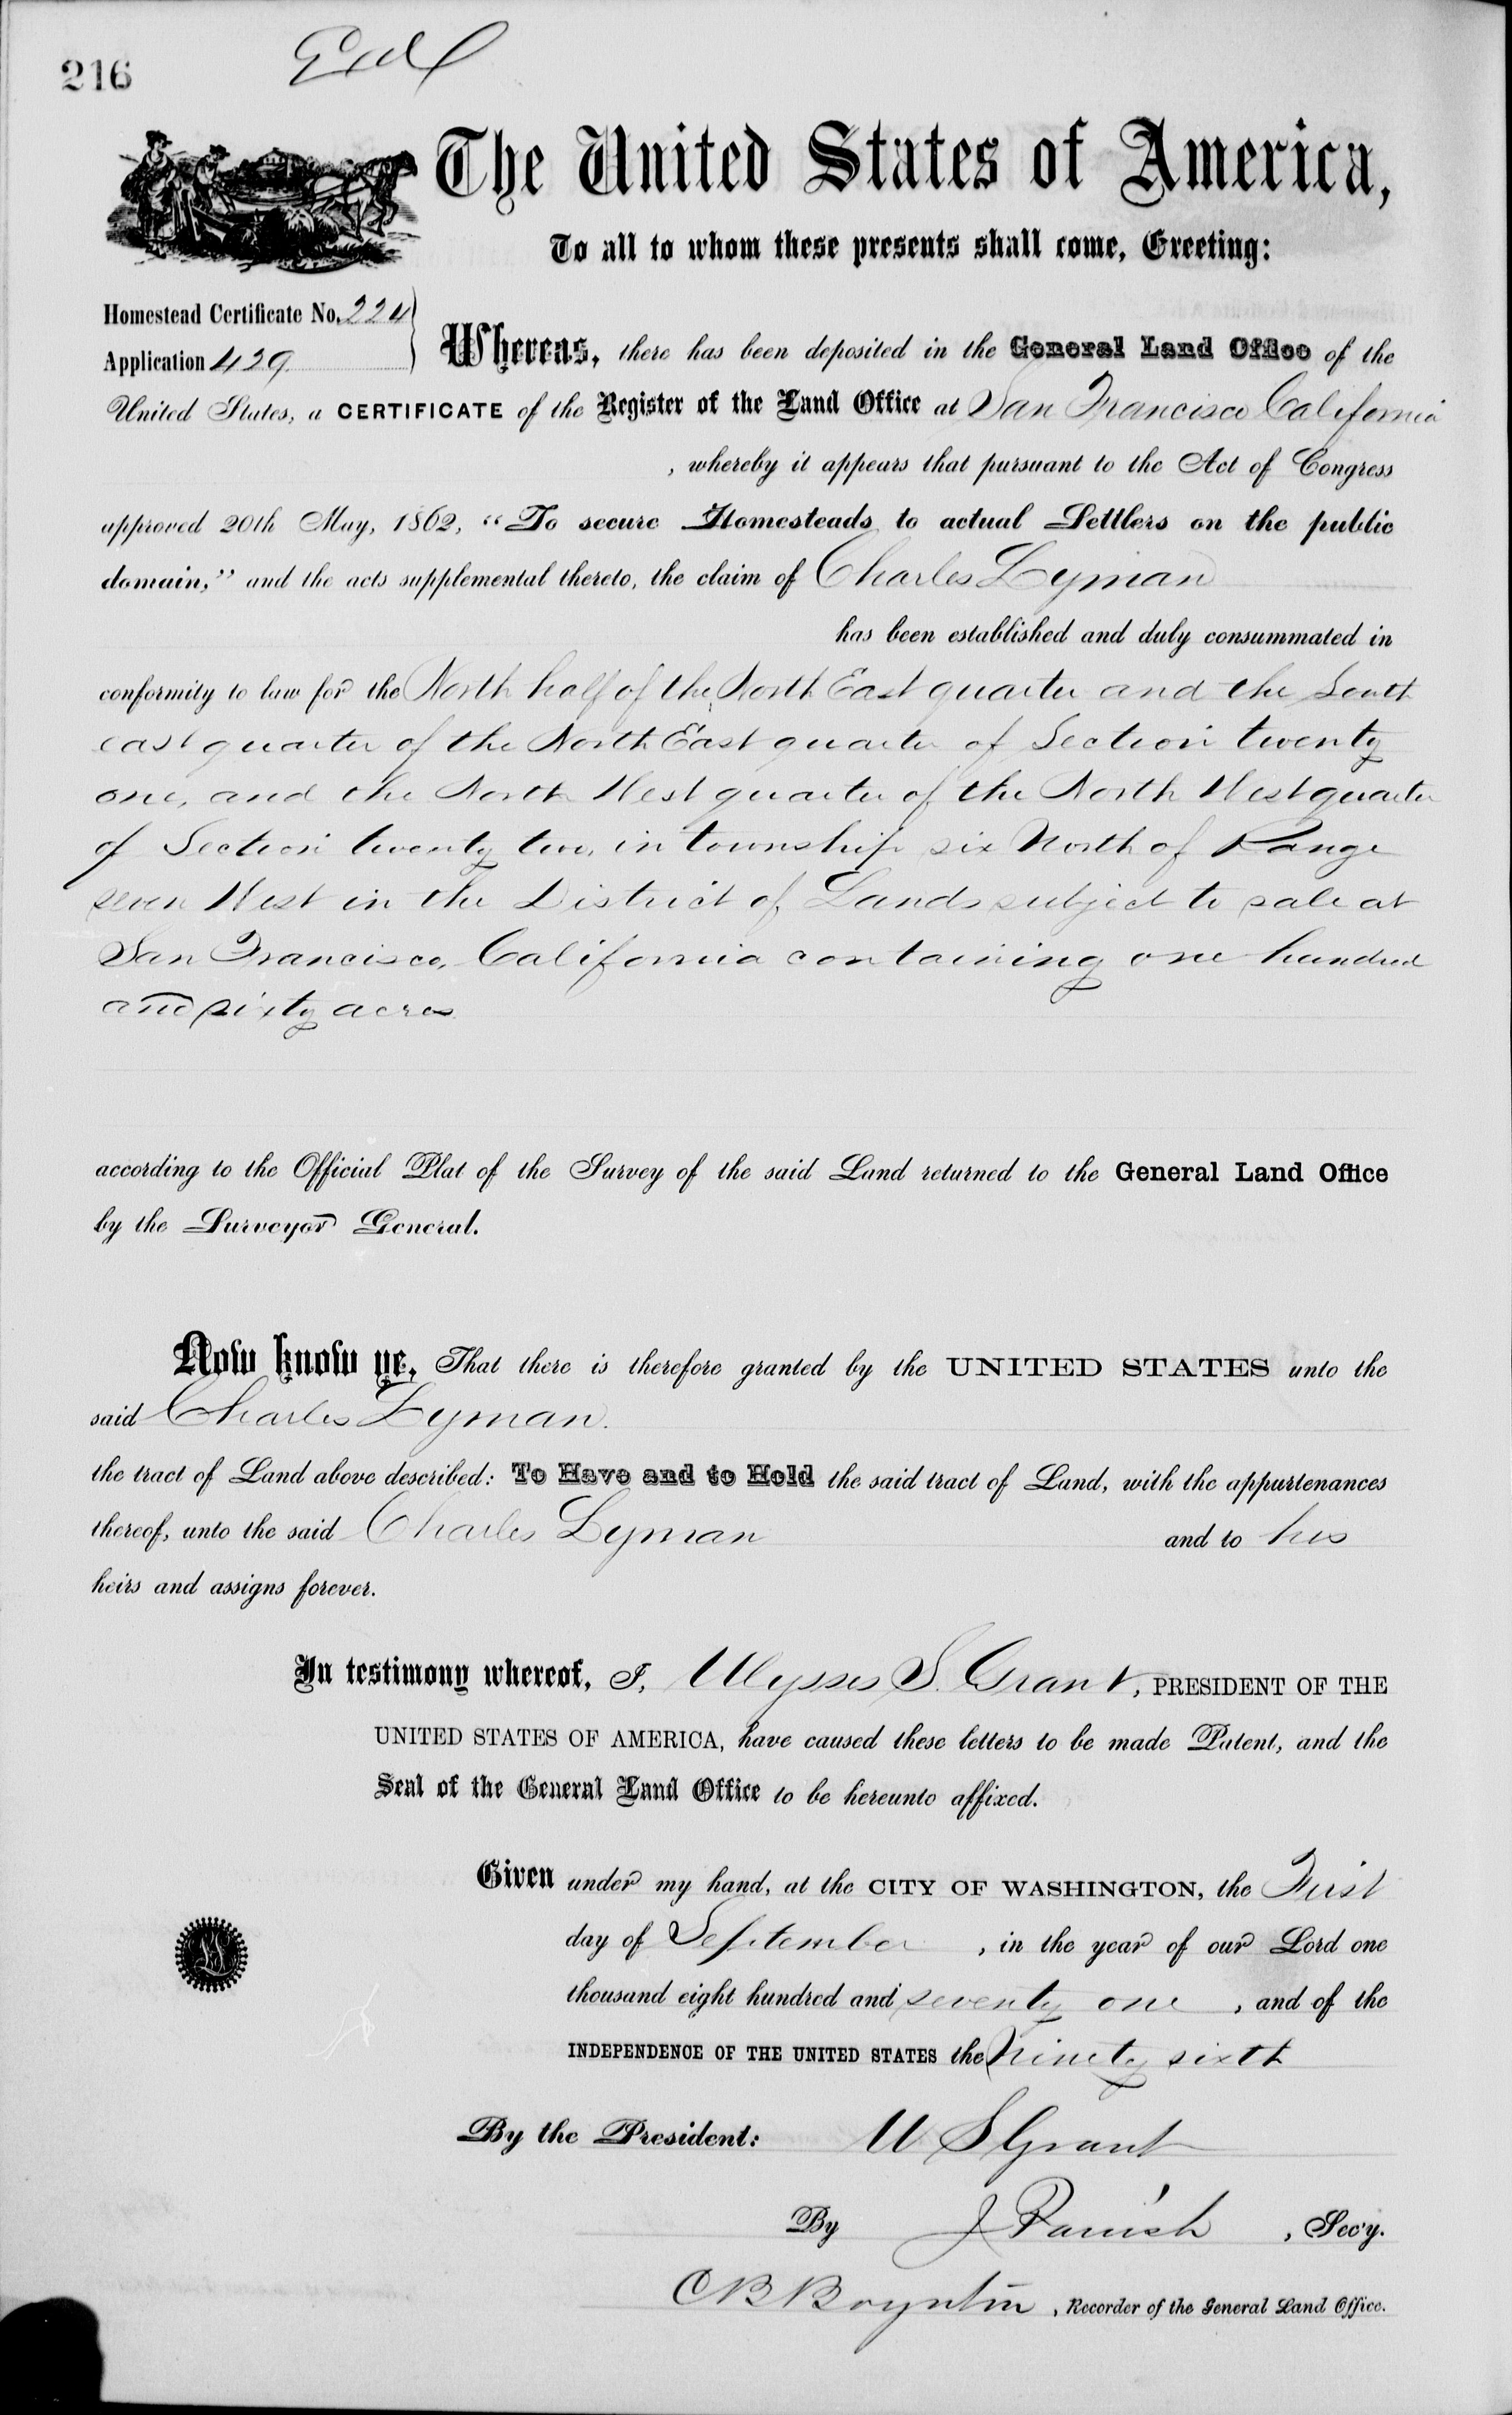 216
The United States of America,
To all to whom these presents shall come, Greeting:
Homestead Certificate No. 224
Application 429
Whereas, there has been deposited in the General Land Office of the
United States, a CERTIFICATE of the Register of the Land Office at San Francisco California
, whereby it appears that pursuant to the Act of Congress
approved 20th May, 1862, “To secure Homesteads to actual Settlers on the public
domain,” and the acts supplemental thereto, the claim of Charles Lyman
has been established and duly consummated in
conformity to law for the North half of the North East quarter and the South
east quarter of the North East quarter of Section twenty
one, and the North West quarter of the North West quarter
of Section twenty two, in township six North of Range
seven West in the District of Lands subject to sale at
San Francisco, California containing one hundred
and sixty acres
according to the Official Plat of the Survey of the said Land returned to the General Land Office
by the Surveyor General.
Now know ye, That there is therefore granted by the UNITED STATES unto the
said Charles Lyman.
the tract of Land above described: To Have and to Hold the said tract of Land, with the appurtenances
thereof, unto the said Charles Lyman and to his
heirs and assigns forever.
In testimony whereof, I, Ulysses S. Grant, PRESIDENT OF THE
UNITED STATES OF AMERICA, have caused these letters to be made Patent, and the
Seal of the General Land Office to be hereunto affixed.
Given under my hand, at the CITY OF WASHINGTON, the First
day of September, in the year of our Lord one
thousand eight hundred and seventy one, and of the
INDEPENDENCE OF THE UNITED STATES the Ninety sixth
By the President: U S Grant
By J Parrish, Sec'y.
C B Boynton, Recorder of the General Land Office.